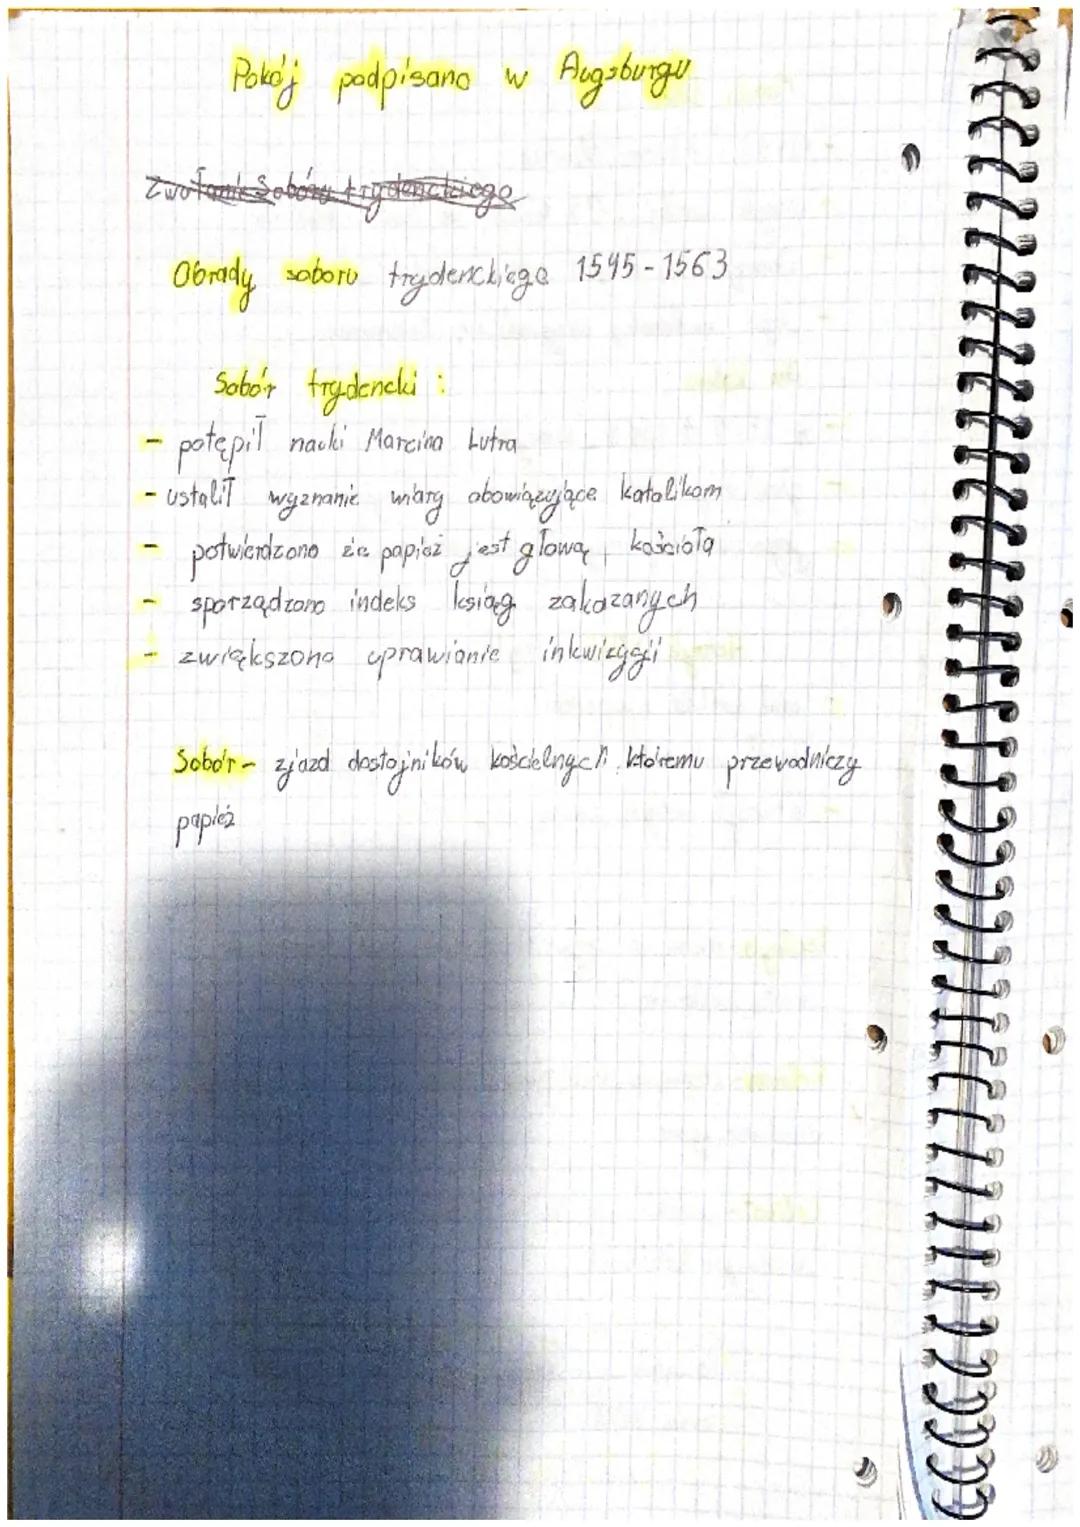 Pokój podpisano w Augsburgu
Zwołanie Soboru trydenckiego
Obrady soboru trydenckiego 1545-1563
Sobór trydencki :
- potępił nauki Marcina Lutra
- ustalił wyznanie wiary obowiązujące katolikom
- potwierdzono że papież jest głową kościoła
- sporządzono indeks ksiąg zakazanych
- zwiększono uprawianie inkwizycji
Sobór - zjazd dostojników kościelnych któremu przewodniczy
papież